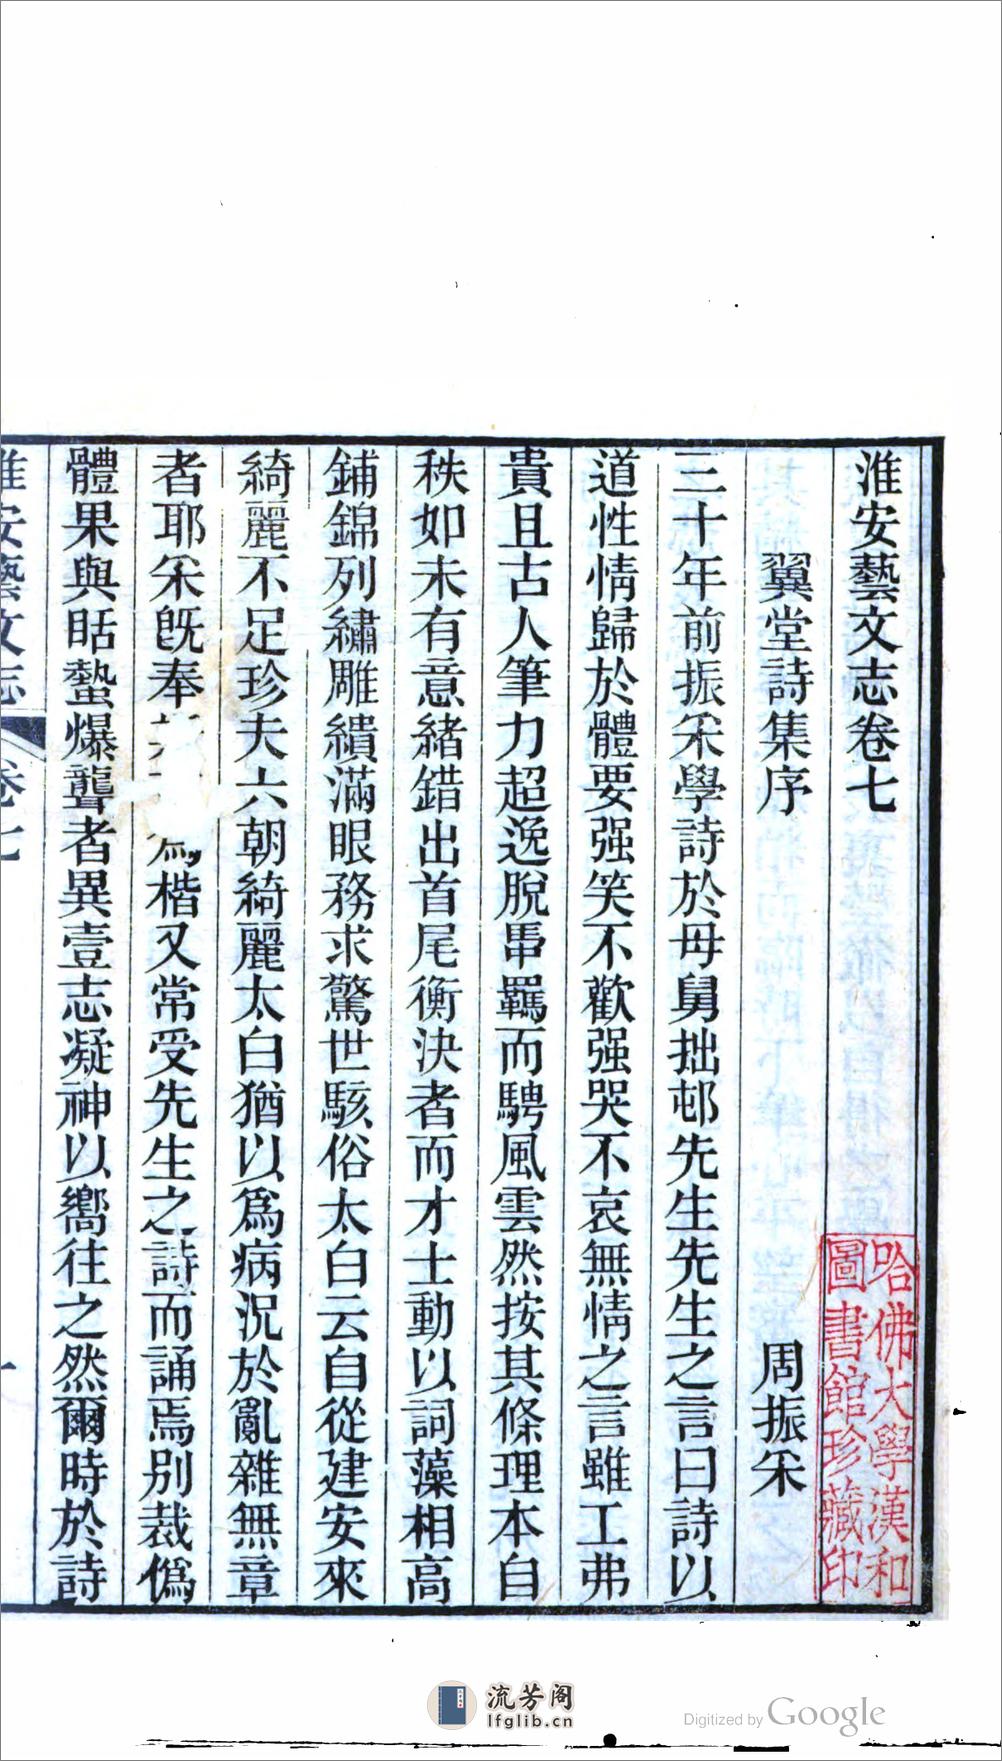 淮安藝文志卷七
翼堂詩集序
周振采
三十年前振采學詩於母舅拙邨先生先生之言曰詩以
道性情歸於體要强笑不歡强哭不哀無情之言雖工弗
貴且古人筆力超逸脫馽羈而騁風雲然按其條理本自
秩如未有意緒錯出首尾衡決者而才士動以詞藻相高
鋪錦列繡雕繢滿眼務求驚世駭俗太白云自從建安來
綺麗不足珍夫六朝綺麗太白猶以爲病況於亂雜無章
者耶采旣奉爲楷又常受先生之詩而誦焉別裁僞
體果與聒蟄爆聾者異壹志凝神以嚮往之然爾時於詩
淮安藝文志
卷七
一
哈佛大學漢和
圖書館珍藏印
流芳阁
lfglib.cn
Digitized by Google